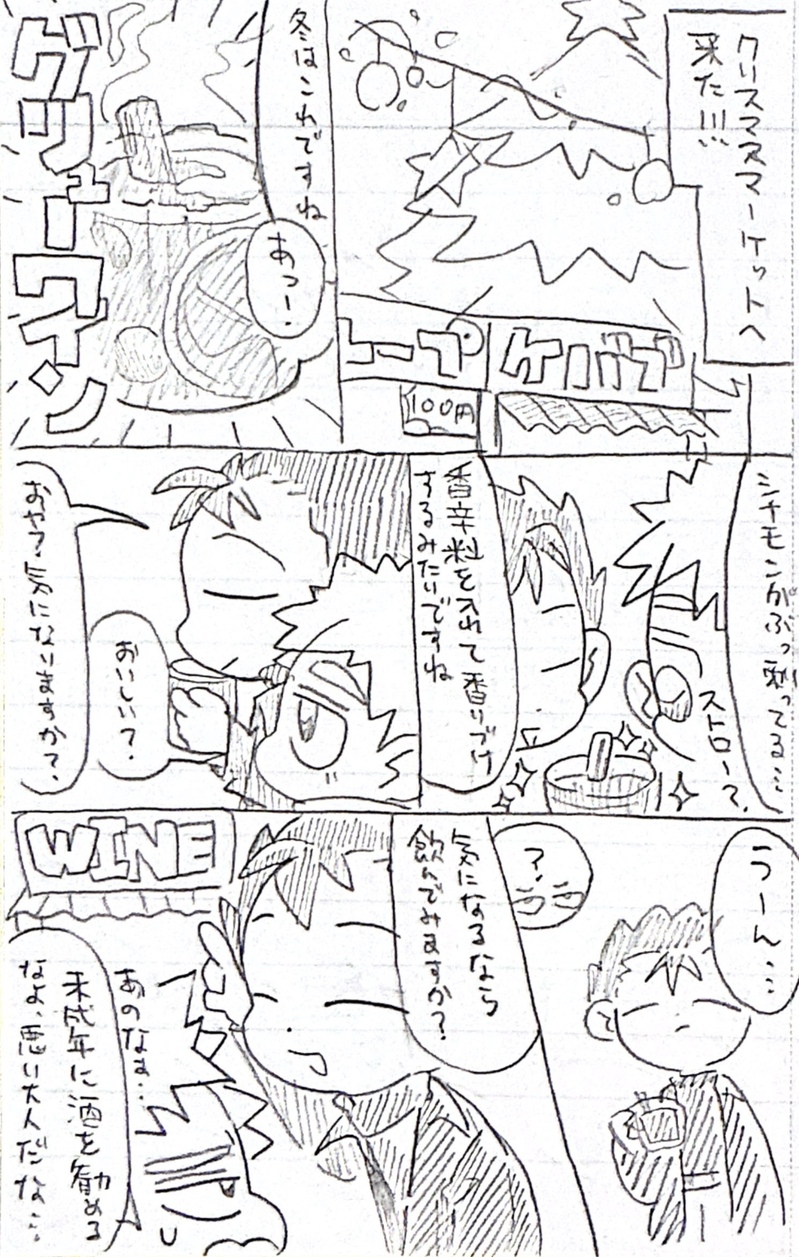 クリスマスマーケットへ
来た!!!
ケバブ
ープ
100円
冬はこれですね
あつー.
グリューワイン
シナモンがぶっ刺ってる…
ストロー?
香辛料を入れて香りづけ
するみたいですね
おいしい?
おや?気になりますか?
うーん…
?
気になるなら
飲んでみますか?
WINE
あのなぁ…
未成年に酒を勧める
なよ、悪い大人だな…